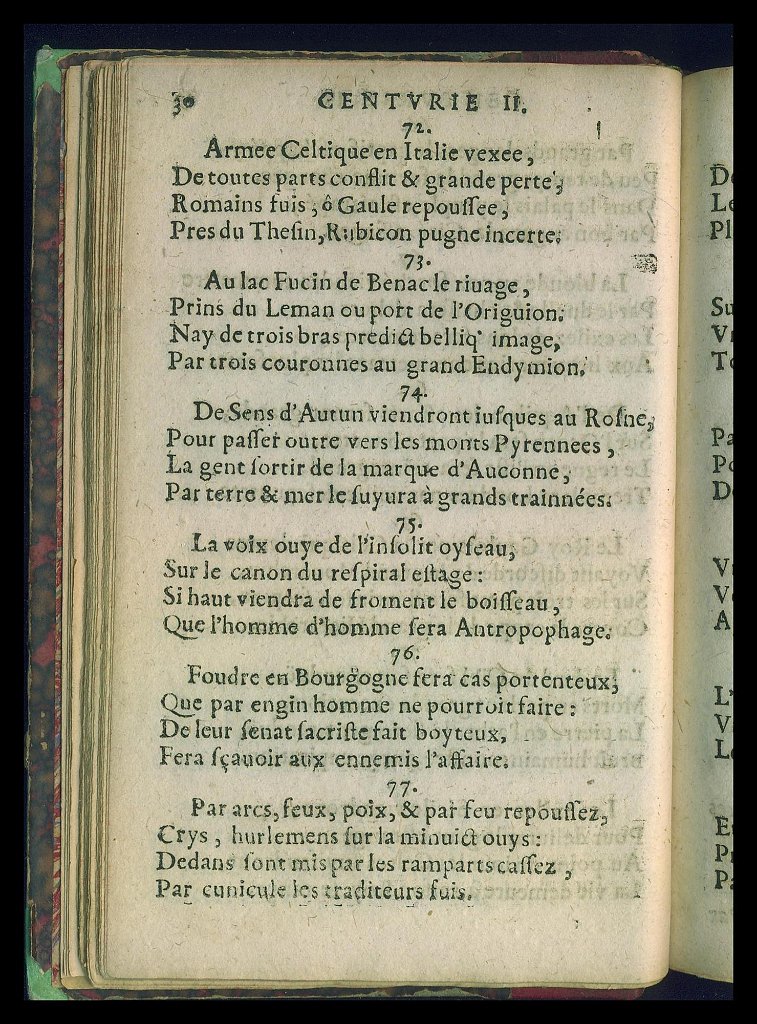 30 CENTVRIE II.
72.
Armee Celtique en Italie vexee,
De toutes parts conflit & grande perte,
Romains fuis, ô Gaule repouſſee,
Pres du Theſin, Rubicon pugne incerte.
73.
Au lac Fucin de Benac le riuage,
Prins du Leman ou port de l'Origuion:
Nay de trois bras predict belliq' image,
Par trois couronnes au grand Endymion.
74.
De Sens d'Autun viendront iuſques au Roſne,
Pour paſſer outre vers les monts Pyrennees,
La gent ſortir de la marque d'Auconne,
Par terre & mer le ſuyura à grands trainnées.
75.
La voix ouye de l'inſolit oyſeau,
Sur le canon du reſpiral eſtage:
Si haut viendra de froment le boiſſeau,
Que l'homme d'homme ſera Antropophage.
76.
Foudre en Bourgogne fera cas portenteux,
Que par engin homme ne pourroit faire:
De leur ſenat ſacriſte fait boyteux,
Fera ſçauoir aux ennemis l'affaire.
77.
Par arcs, feux, poix, & par feu repouſſez,
Crys, hurlemens ſur la minuict ouys:
Dedans ſont mis par les ramparts caſſez,
Par cunicule les traditeurs fuis.
De
Le
Pl
Su
V
To
Pa
Po
D
V
Vo
A
L'
V
Le
E
Pr
Pa